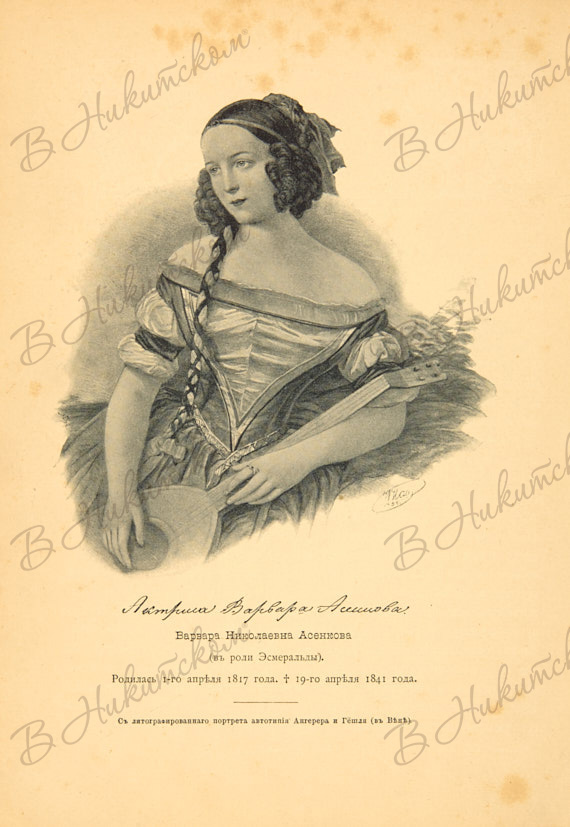 В Никитском
В Никитском
В Никитском
В Никитском
В Никитском
В Никитском
Актриса Варвара Асенкова.
Варвара Николаевна Асенкова
(въ роли Эсмеральды).
Родилась 1-го апрѣля 1817 года. † 19-го апрѣля 1841 года.
Съ литографированнаго портрета автотипія Ангерера и Гёшля (въ Вѣнѣ).
В Никитском
В Никитском